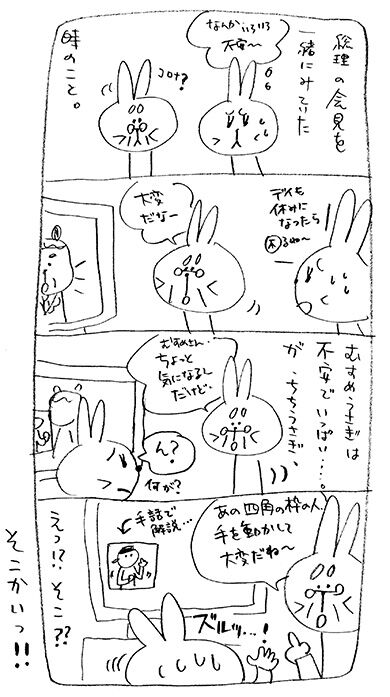 総理の会見を
一緒にみていた
時のこと。
なんかいろいろ
不安〜
コロナ?
デイも
休みに
なったら
困るね〜
大変
だなー
むすめうさぎは
不安でいっぱい…。
が、ちちうさぎ、
むすめさん、
ちょっと
気になるし
だけど…
ん?
何が?
あの四角の枠の人、
手を動かして
大変だね〜
手話で
解説…
ズルッ…!
えっ!?そこ??
そこかいっ!!